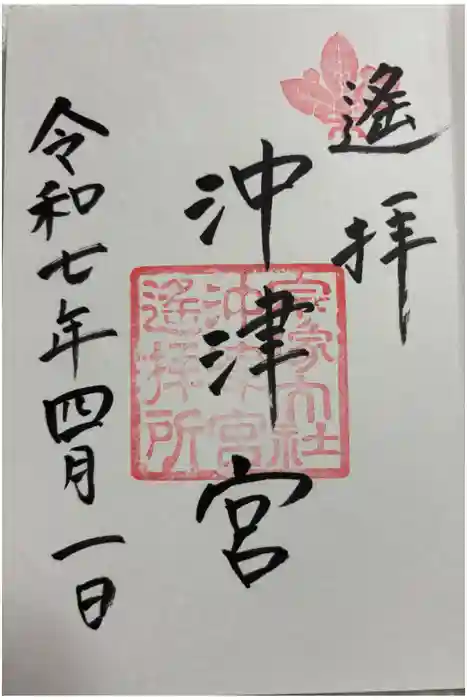 遙拝
沖津宮
令和七年四月一日
宗像大社
沖津宮
遙拝所